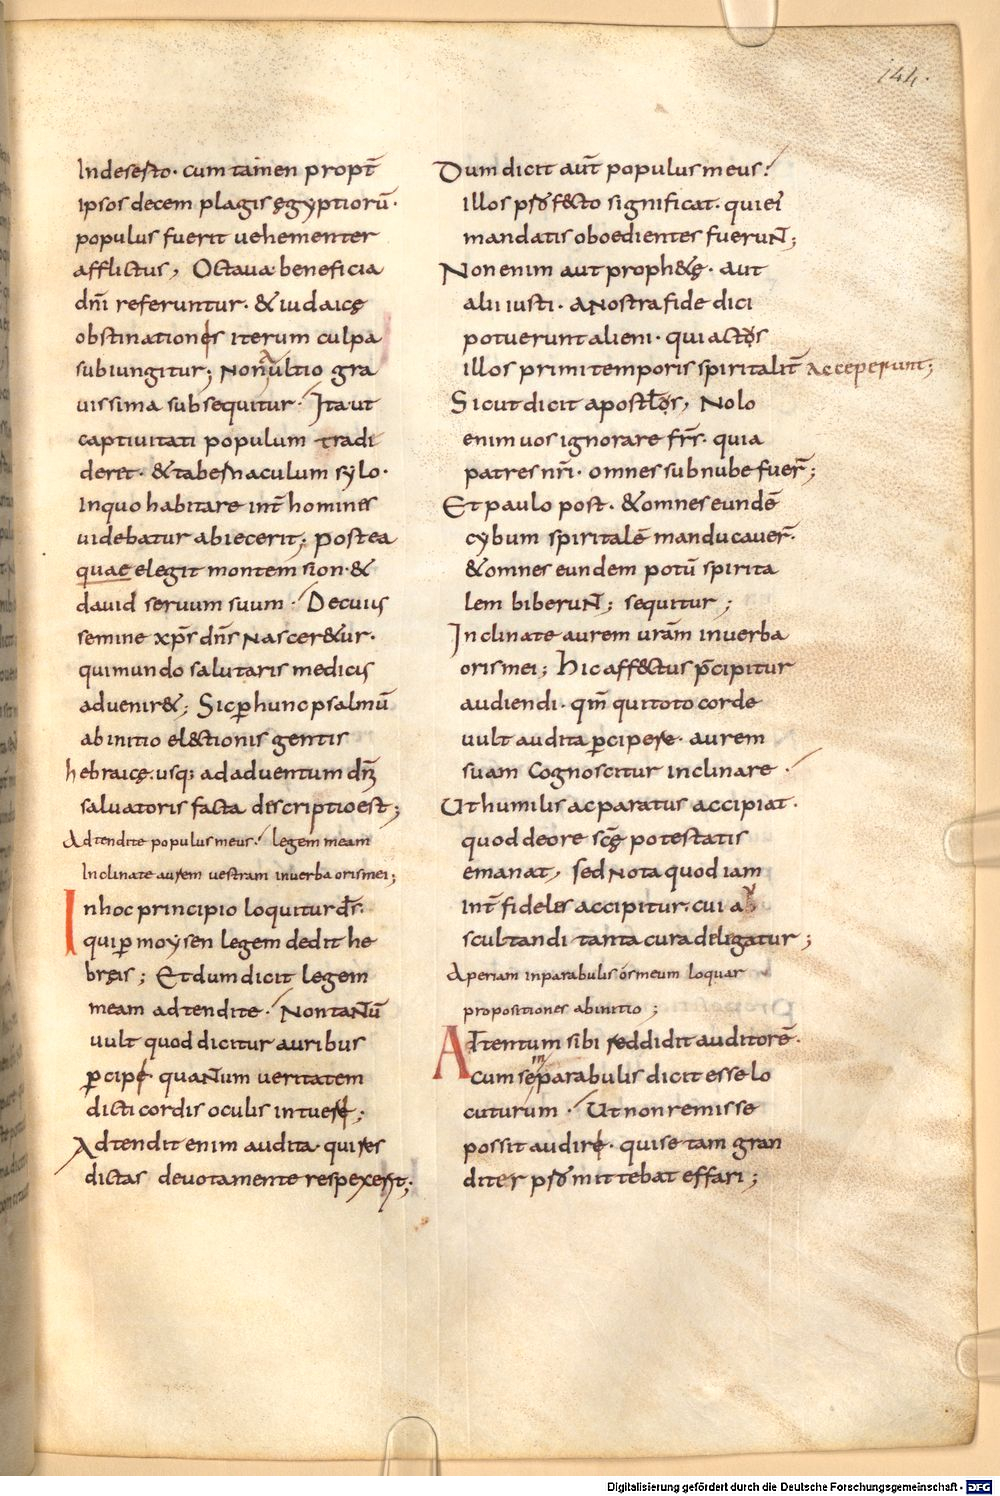 144.
Indesesto· cum tamen propt̄
ipsos decem plagis ęgyptiorū·
populus fuerit uehementer
afflictus, Octaua beneficia
dn̄i referuntur· & iudaicę
obstinationes iterum culpa
subiungitur; Non multio gra
uissima subsequitur· Ita ut
captiuitati populum tradi
derit· & tabernaculum sylo·
inquo habitare int̄ homines
uidebatur abiecerit; postea
quae elegit montem sion· &
dauid seruum suum· De cuius
semine xp̄s dn̄s nascer&ur·
qui mundo salutaris medicus
aduenir&; Sic ꝑ hunc psalmū
ab initio el&ctionis gentis
hebraicę· usq; ad aduentum
saluatoris facta discriptio est;
Adtendite populus meus· legem meam
Inclinate aurem uestram in uerba oris mei;
In hoc principio loquitur ds̄·
qui ꝑ moysen legem dedit he
bręis; Et dum dicit legem
meam adtendite· Non tantū
uult quod dicitur auribus
ꝑcipe quantum ueritatem
dicti cordis oculis intueri;
Adtendit enim audita· qui res
dictas deuotamente respexerit;
Dum dicit aut̄ populus meus·
illos ꝓf&cto significat· qui ei
mandatis oboedientes fuerunt;
Non enim aut proph&ę· aut
alii iusti· a nostra fide dici
potuerunt alieni· qui actos
illos primi temporis spiritalit̄ acceperunt;
Sicut dicit apostl̄os, Nolo
enim uos ignorare fr̄s· quia
patres nr̄i· omnes sub nube fuer̄;
Et paulo post· & omnes eundē
cybum spiritalē manducauer̄·
& omnes eundem potū spirita
lem biberunt; sequitur;
Inclinate aurem ur̄am in uerba
oris mei; Hic aff&ctus p̄cipitur
audiendi· qm̄ qui toto corde
uult audita ꝑcipere· aurem
suam cognoscitur inclinare·
Ut humilis ac paratus accipiat·
quod de ore scę̄ potestatis
emanat, sed nota quod iam
int̄ fideles accipitur· cui
scultandi tanta cura diligatur;
Aperiam in parabulis os meum loquar
propositiones ab initio;
Adtentum sibi reddidit auditorē·
cum se in parabulis dicit esse lo
cuturum· Ut non remisse
possit audire· qui se tam gran
diter ꝓmittebat effari;
Digitalisierung gefördert durch die Deutsche Forschungsgemeinschaft - DFG